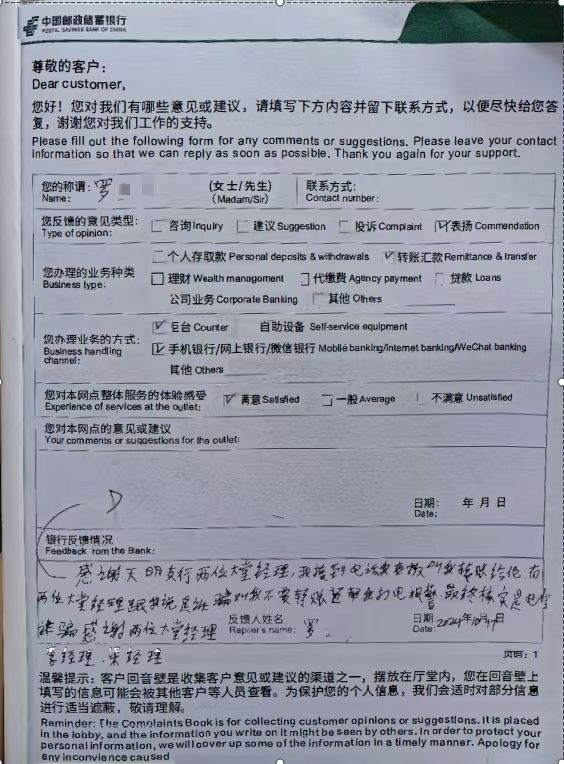 中国邮政储蓄银行
POSTAL SAVINGS BANK OF CHINA
尊敬的客户：
Dear customer,
您好！您对我们有哪些意见或建议，请填写下方内容并留下联系方式，以便尽快给您答
复，谢谢您对我们工作的支持。
Please fill out the following form for any comments or suggestions. Please leave your contact
information so that we can reply as soon as possible. Thank you again for your support.
您的称谓：罗 (女士/先生) 联系方式：
Name: (Madam/Sir) Contact number:
您反馈的意见类型： 咨询Inquiry 建议Suggestion 投诉Complaint 表扬Commendation
Type of opinion:
个人存取款 Personal deposits & withdrawals 转账汇款 Remittance & transfer
您办理的业务种类 理财 Wealth management 代缴费 Agency payment 贷款 Loans
Business type:
公司业务 Corporate Banking 其他 Others
您办理业务的方式： 柜台 Counter 自助设备 Self-service equipment
Business handling channel: 手机银行/网上银行/微信银行 Mobile banking/internet banking/WeChat banking
其他 Others
您对本网点整体服务的体验感受 满意 Satisfied 一般 Average 不满意 Unsatisfied
Experience of services at the outlet:
您对本网点的意见或建议
Your comments or suggestions for the outlet:
日期： 年 月 日
Date:
银行反馈情况
Feedback from the Bank:
感谢天明支行两位大堂经理，我接到电话 叫我转账给他，有
两位大堂经理跟我说是诈骗叫我不要转账还帮我打电话报警 最终核实是电信
诈骗 感谢两位大堂经理 反馈人姓名 罗 日期
Replier's name: Date: 2024年10月
李经理、宋经理
页码：1
温馨提示：客户回音壁是收集客户意见或建议的渠道之一，摆放在厅堂内，您在回音壁上
填写的信息可能会被其他客户等人员查看。为保护您的个人信息，我们会适时对部分信息
进行适当遮蔽，敬请理解。
Reminder: The Complaints Book is for collecting customer opinions or suggestions. It is placed
in the lobby, and the information you write on it might be seen by others. In order to protect your
personal information, we will cover up some of the information in a timely manner. Apology for
any inconvience caused